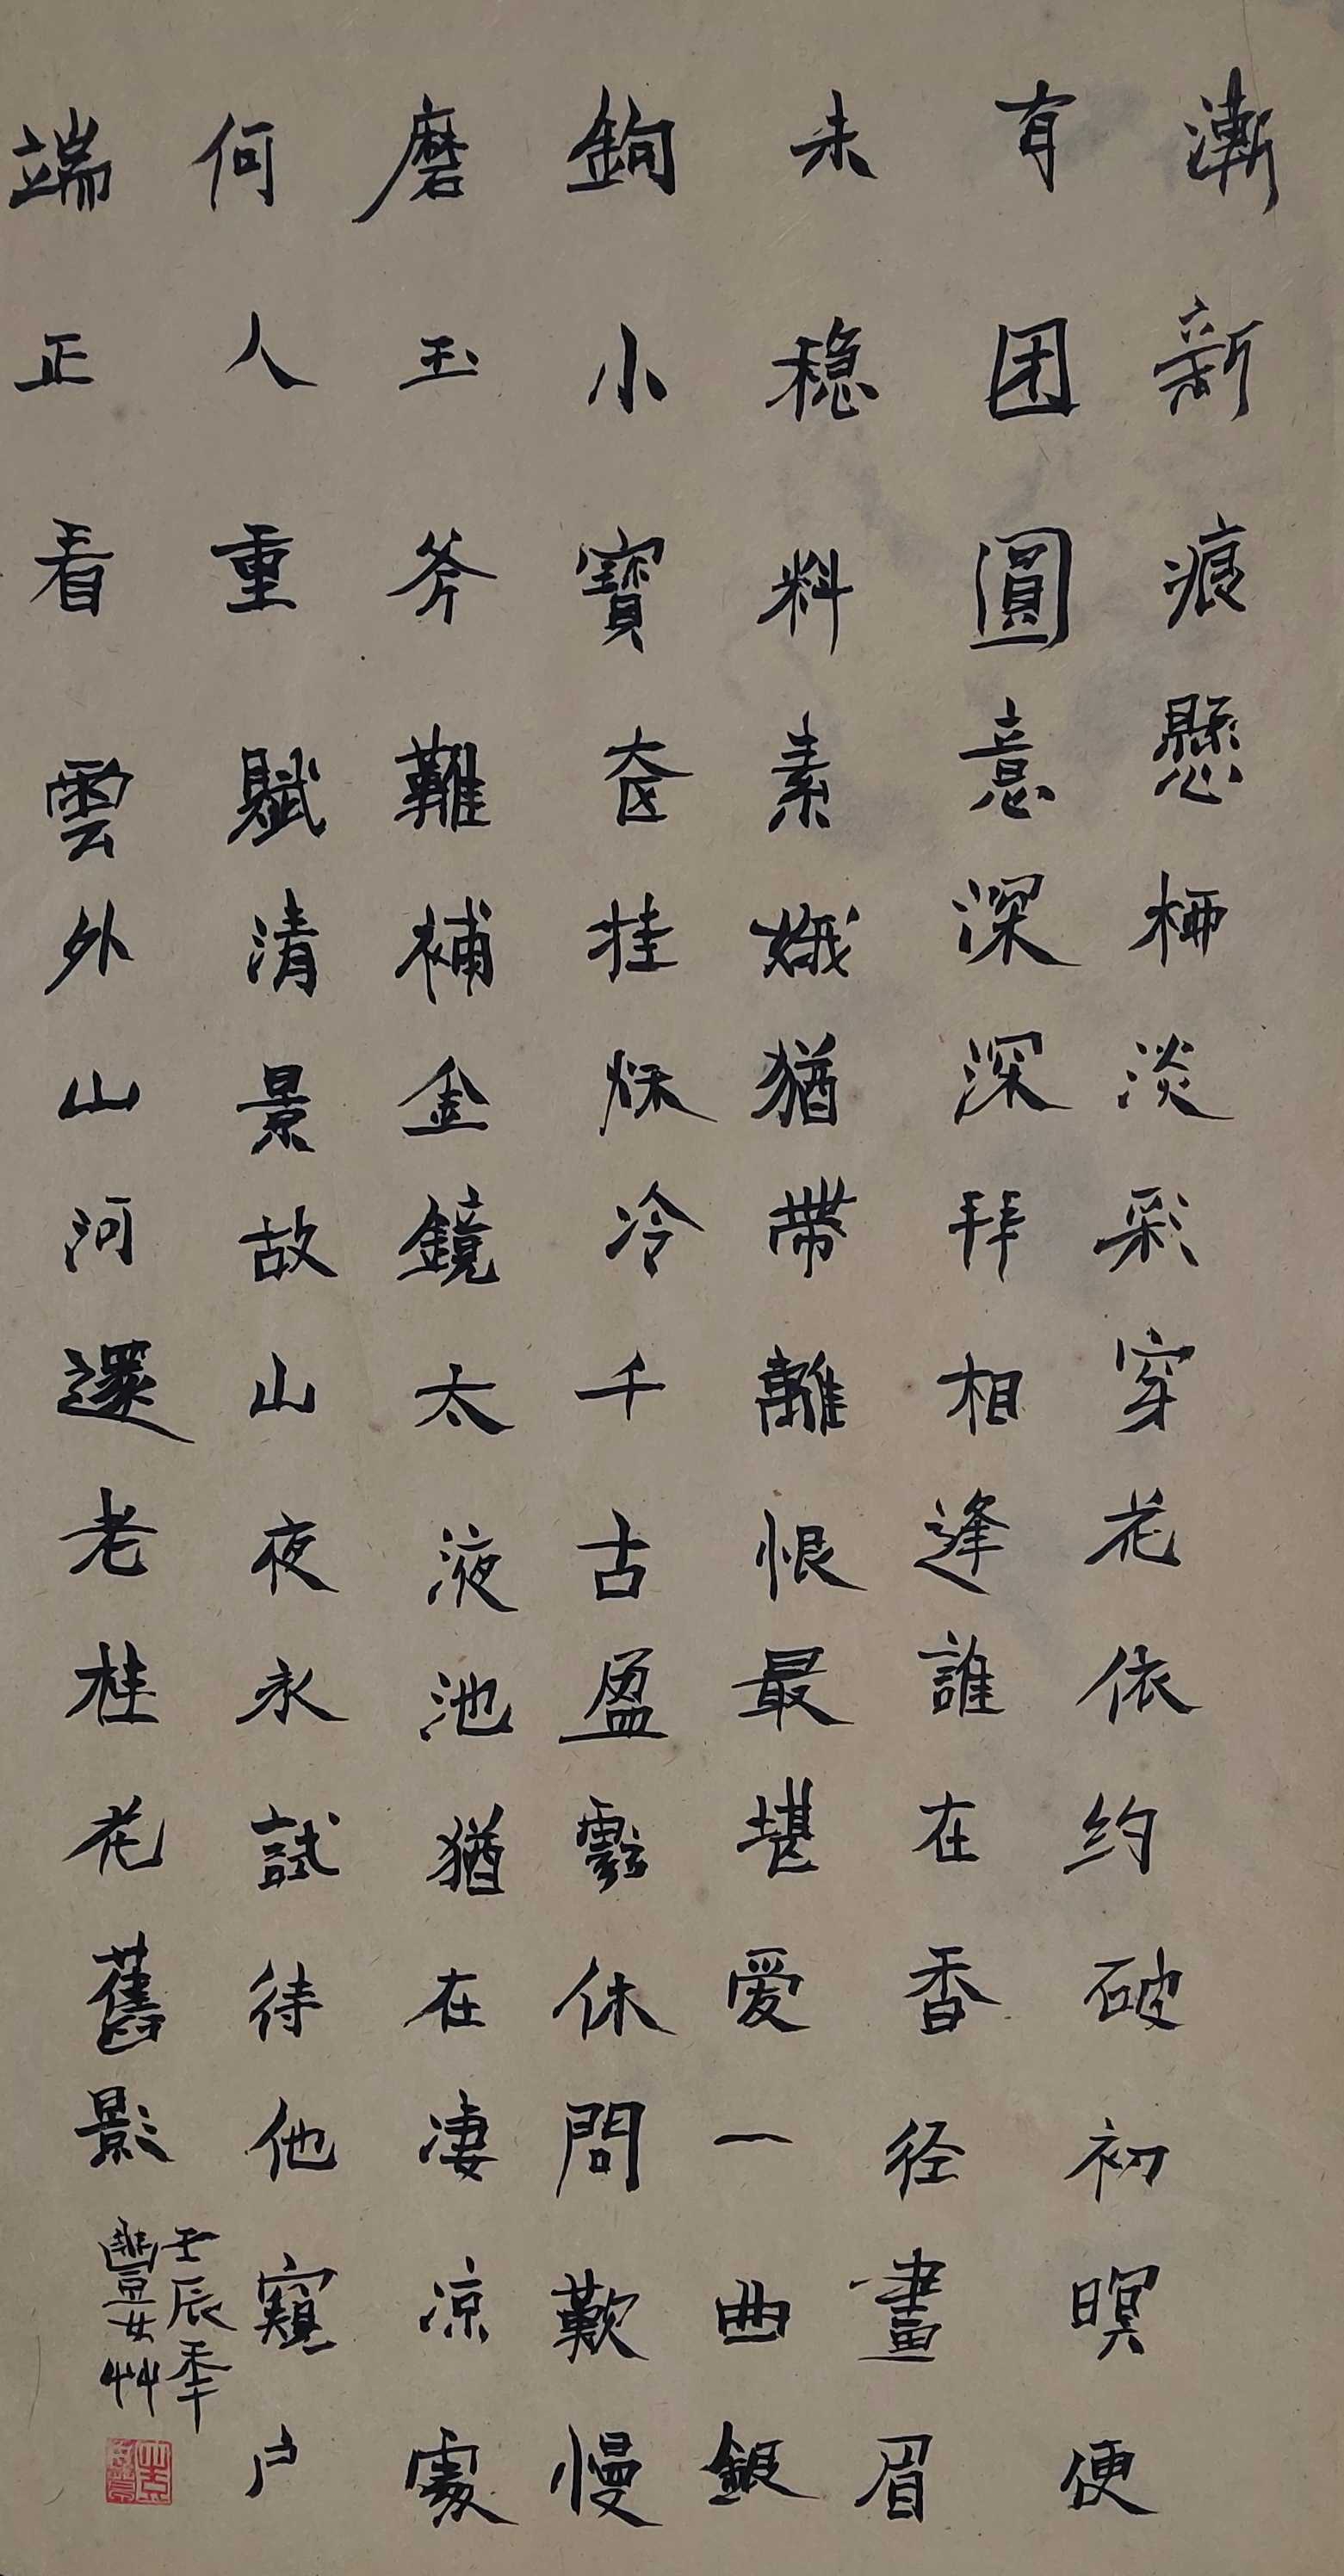 漸新痕懸柳淡彩穿花依约破初暝便
有团圓意深深拜相逢誰在香径畫眉
未稳料素娥猶帶離恨最堪爱一曲銀
鉤小寶奁挂秋冷千古盈虧休問歎慢
磨玉斧難補金鏡太液池猶在凄凉處
何人重賦清景故山夜永試待他窺户
端正看雲外山河還老桂花舊影
壬辰季